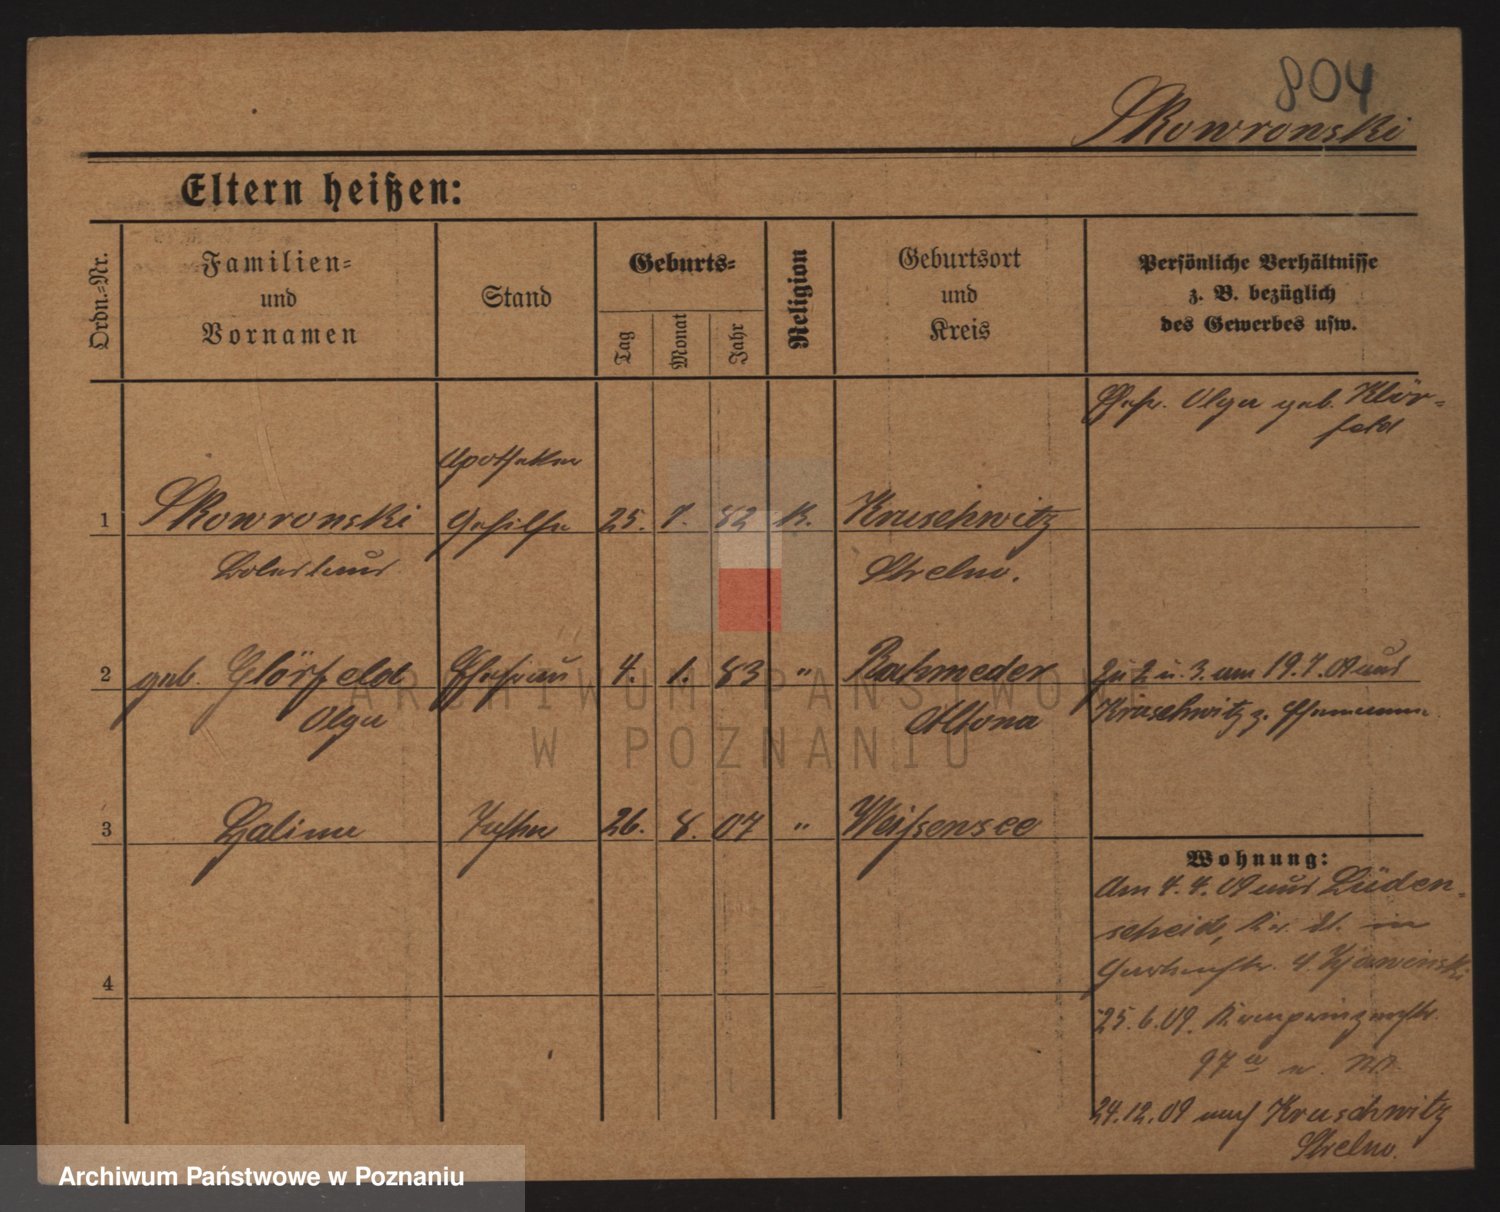 804
Skowronski
Eltern heißen:
Ordn.=Nr.
Familien=
und
Vornamen
Stand
Geburts=
Tag
Monat
Jahr
Religion
Geburtsort
und
Kreis
Persönliche Verhältnisse
z. B. bezüglich
des Gewerbes usw.
Ehefr. Olga geb. Klör=
feld
Apotheker
1 Skowronski Gehilfe 25. 7. 82 K. Kruschwitz
Boleslaus Strelno.
2 geb. Glörfeld Ehefrau 4. 1. 83 " Rahmeder zu 2 u. 3. am 19.7.09 aus
Olga Altona Kruschwitz z. Ehemann
3 Halina Tochter 26. 8. 07 " Weißensee
Wohnung:
Am 7.4.09 aus Lüden=
scheid, in
4
25.6.09.
97a
24.12.09 nach Kruschwitz
Strelno.
ARCHIWUM PAŃSTWOWE
W POZNANIU
Archiwum Państwowe w Poznaniu